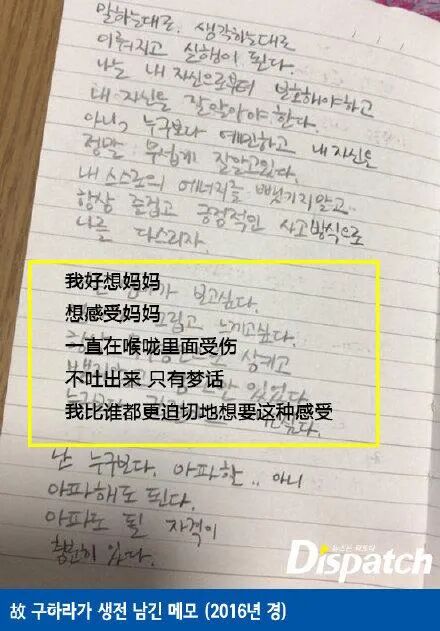 말하는대로. 생각하는대로
이뤄지고 실행이 된다.
나는 내 자신으로부터 보호해야하고
내 자신을 잘 알아야 한다.
아니, 누구보다 예민하고 내 자신을
정말 무섭게 잘알고있다.
내 스스로의 에너지를 뺏기지말고
항상 즐겁고 긍정적인 사고방식으로
나를 다스리자.
我好想妈妈
보고싶다.
想感受妈妈
느끼고싶다.
一直在喉咙里面受伤
삼키고
不吐出来 只有梦话
있었다
我比谁都更迫切地想要这种感受
난 누구보다. 아파할.. 아니
아파해도 된다.
아파도 될 자격이
충분히 있다.
뉴스는 팩트다
Dispatch
故 구하라가 생전 남긴 메모 (2016년 경)